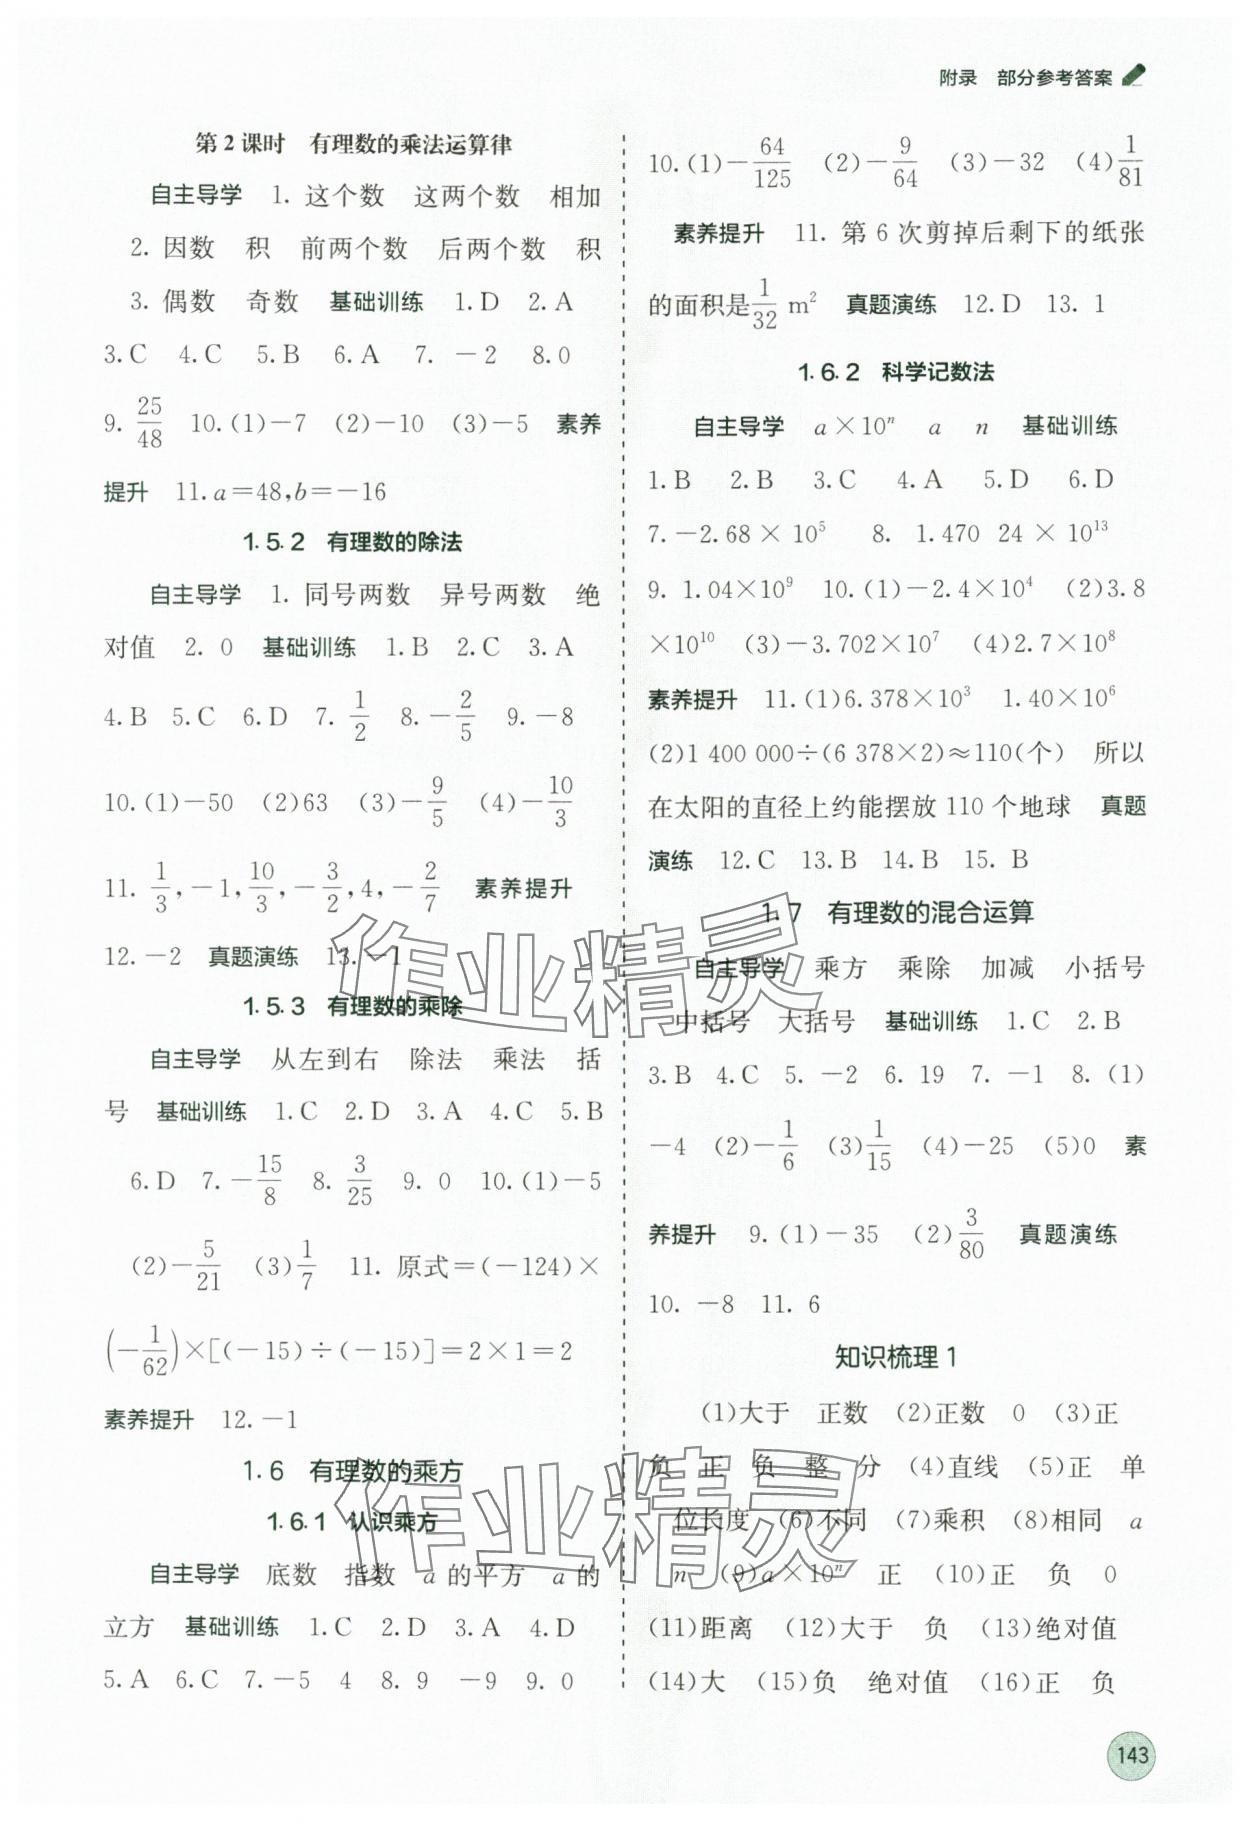 附录　部分参考答案
第2课时　有理数的乘法运算律
自主导学　1. 这个数　这两个数　相加
2. 因数　积　前两个数　后两个数　积
3. 偶数　奇数　基础训练　1.D　2.A
3.C　4.C　5.B　6.A　7. －2　8.0
9. 25/48　10.(1)－7　(2)－10　(3)－5　素养
提升　11.a＝48,b＝－16
1.5.2　有理数的除法
自主导学　1. 同号两数　异号两数　绝
对值　2. 0　基础训练　1.B　2.C　3.A
4.B　5.C　6.D　7. 1/2　8. －2/5　9.－8
10.(1)－50　(2)63　(3)－9/5　(4)－10/3
11. 1/3,－1,10/3,－3/2,4,－2/7　素养提升
12.－2　真题演练　13.－1
1.5.3　有理数的乘除
自主导学　从左到右　除法　乘法　括
号　基础训练　1.C　2.D　3.A　4.C　5.B
6.D　7. －15/8　8. 3/25　9. 0　10.(1)－5
(2)－5/21　(3)1/7　11. 原式＝(－124)×
(－1/62)×[(－15)÷(－15)]＝2×1＝2
素养提升　12.－1
1.6　有理数的乘方
1.6.1　认识乘方
自主导学　底数　指数　a的平方　a的
立方　基础训练　1.C　2.D　3.A　4.D
5.A　6.C　7.－5　4　8. 9　－9　9. 0
10.(1)－64/125　(2)－9/64　(3)－32　(4)1/81
素养提升　11. 第6次剪掉后剩下的纸张
的面积是1/32 m²　真题演练　12.D　13. 1
1.6.2　科学记数法
自主导学　a×10ⁿ　a　n　基础训练
1.B　2.B　3.C　4.A　5.D　6.D
7.－2.68×10⁵　8. 1.470 24×10¹³
9. 1.04×10⁹　10.(1)－2.4×10⁴　(2)3.8
×10¹⁰　(3)－3.702×10⁷　(4)2.7×10⁸
素养提升　11.(1)6.378×10³　1.40×10⁶
(2)1 400 000÷(6 378×2)≈110(个)　所以
在太阳的直径上约能摆放110个地球　真题
演练　12.C　13.B　14.B　15. B
1.7　有理数的混合运算
自主导学　乘方　乘除　加减　小括号
中括号　大括号　基础训练　1.C　2.B
3.B　4.C　5. －2　6. 19　7. －1　8. (1)
－4　(2)－1/6　(3)1/15　(4)－25　(5)0　素
养提升　9.(1)－35　(2)3/80　真题演练
10. －8　11. 6
知识梳理1
(1)大于　正数　(2)正数　0　(3)正
负　正　负　整　分　(4)直线　(5)正　单
位长度　(6)不同　(7)乘积　(8)相同　a
n　(9)a×10ⁿ　正　(10)正　负　0
(11)距离　(12)大于　负　(13)绝对值
(14)大　(15)负　绝对值　(16)正　负
143
作业精灵
作业精灵